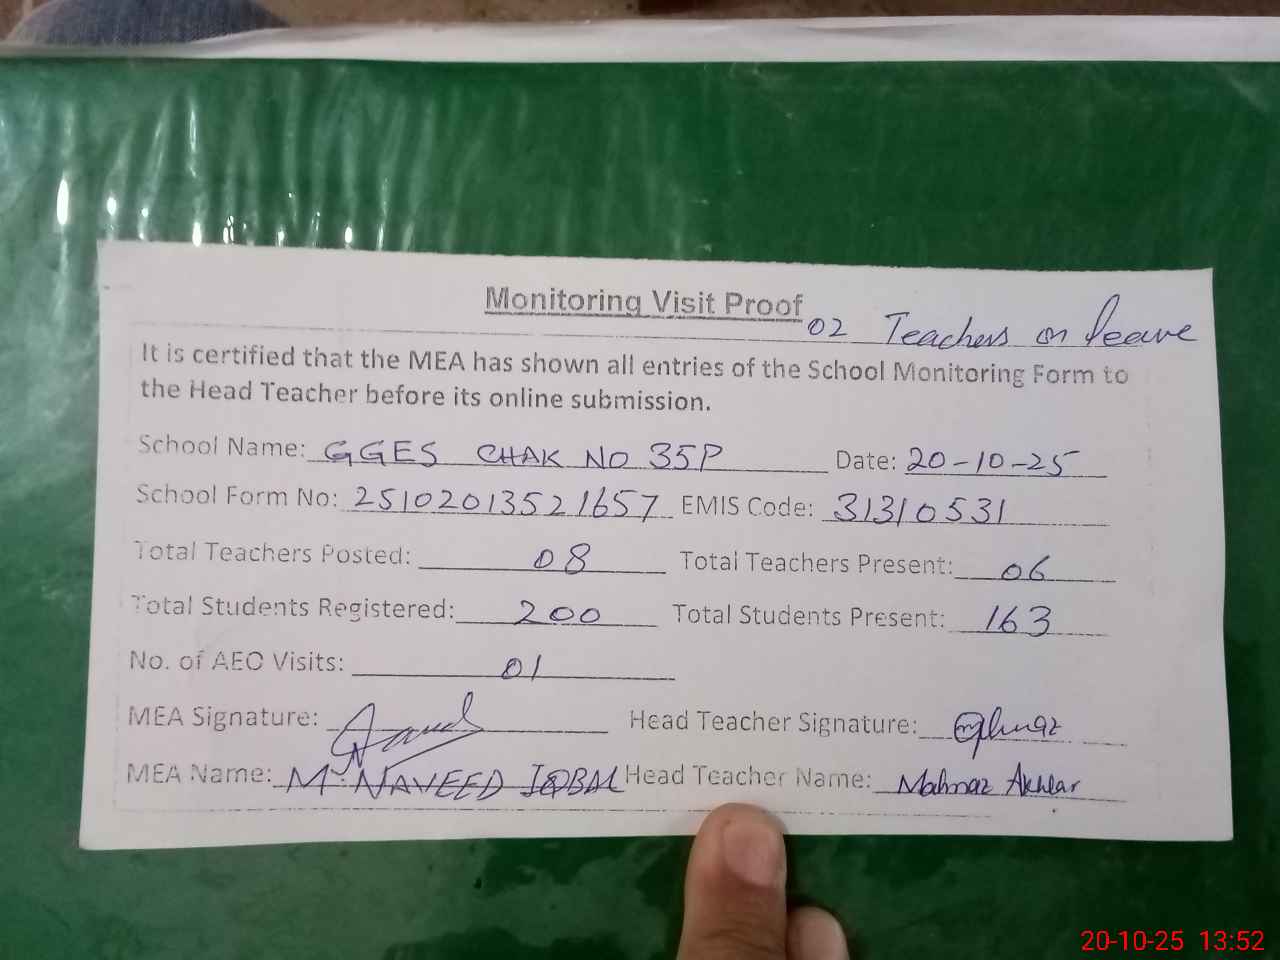 Monitoring Visit Proof
02 Teachers on leave
It is certified that the MEA has shown all entries of the School Monitoring Form to
the Head Teacher before its online submission.
School Name: GGES CHAK NO 35P Date: 20-10-25
School Form No: 25102013521657 EMIS Code: 31310531
Total Teachers Posted: 08 Total Teachers Present: 06
Total Students Registered: 200 Total Students Present: 163
No. of AEO Visits: 01
MEA Signature: Head Teacher Signature:
MEA Name: M. NAVEED IQBAL Head Teacher Name: Mahnaz Akhtar
20-10-25 13:52